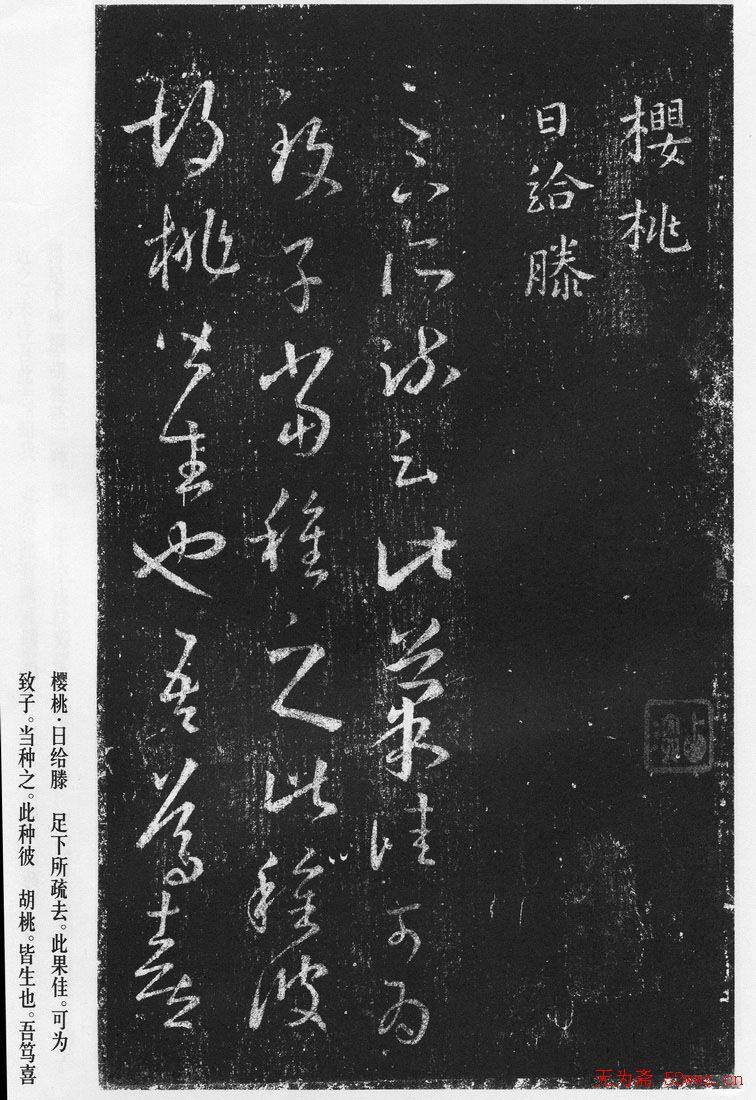 櫻桃
日給滕
足下所疏云此菓佳可為
致子當種之此種彼
胡桃皆生也吾篤喜
樱桃·日给滕　足下所疏去。此果佳。可为
致子。当种之。此种彼　胡桃。皆生也。吾笃喜
无为斋